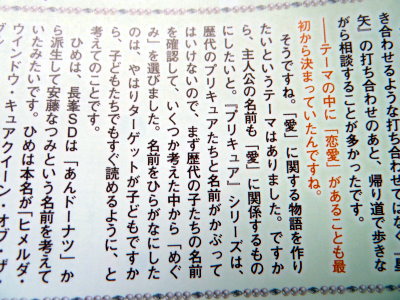 き合わせるような打ち合わせではなく『星
矢』の打ち合わせのあと、帰り道で歩きな
がら相談することが多かったです。
──テーマの中に「恋愛」があることも最
初から決まっていたんですね。
そうですね。「愛」に関する物語を作り
たいというテーマはありました。ですか
ら、主人公の名前も「愛」に関係するもの
にしたいと。『プリキュア』シリーズは、
歴代のプリキュアたちと名前がかぶって
はいけないので、まず歴代の子たちの名前
を確認して、いくつか考えた中から「めぐ
み」を選びました。名前をひらがなにした
のは、やはりターゲットが子どもですか
ら、子どもたちでもすぐ読めるように、と
考えてのことです。
ひめは、長峯SDは「あんドーナツ」か
ら派生して安藤なつみという名前を考えて
いたみたいです。ひめは本名が「ヒメルダ・
ウインドウ・キュアクイーン・オブ・ザ・